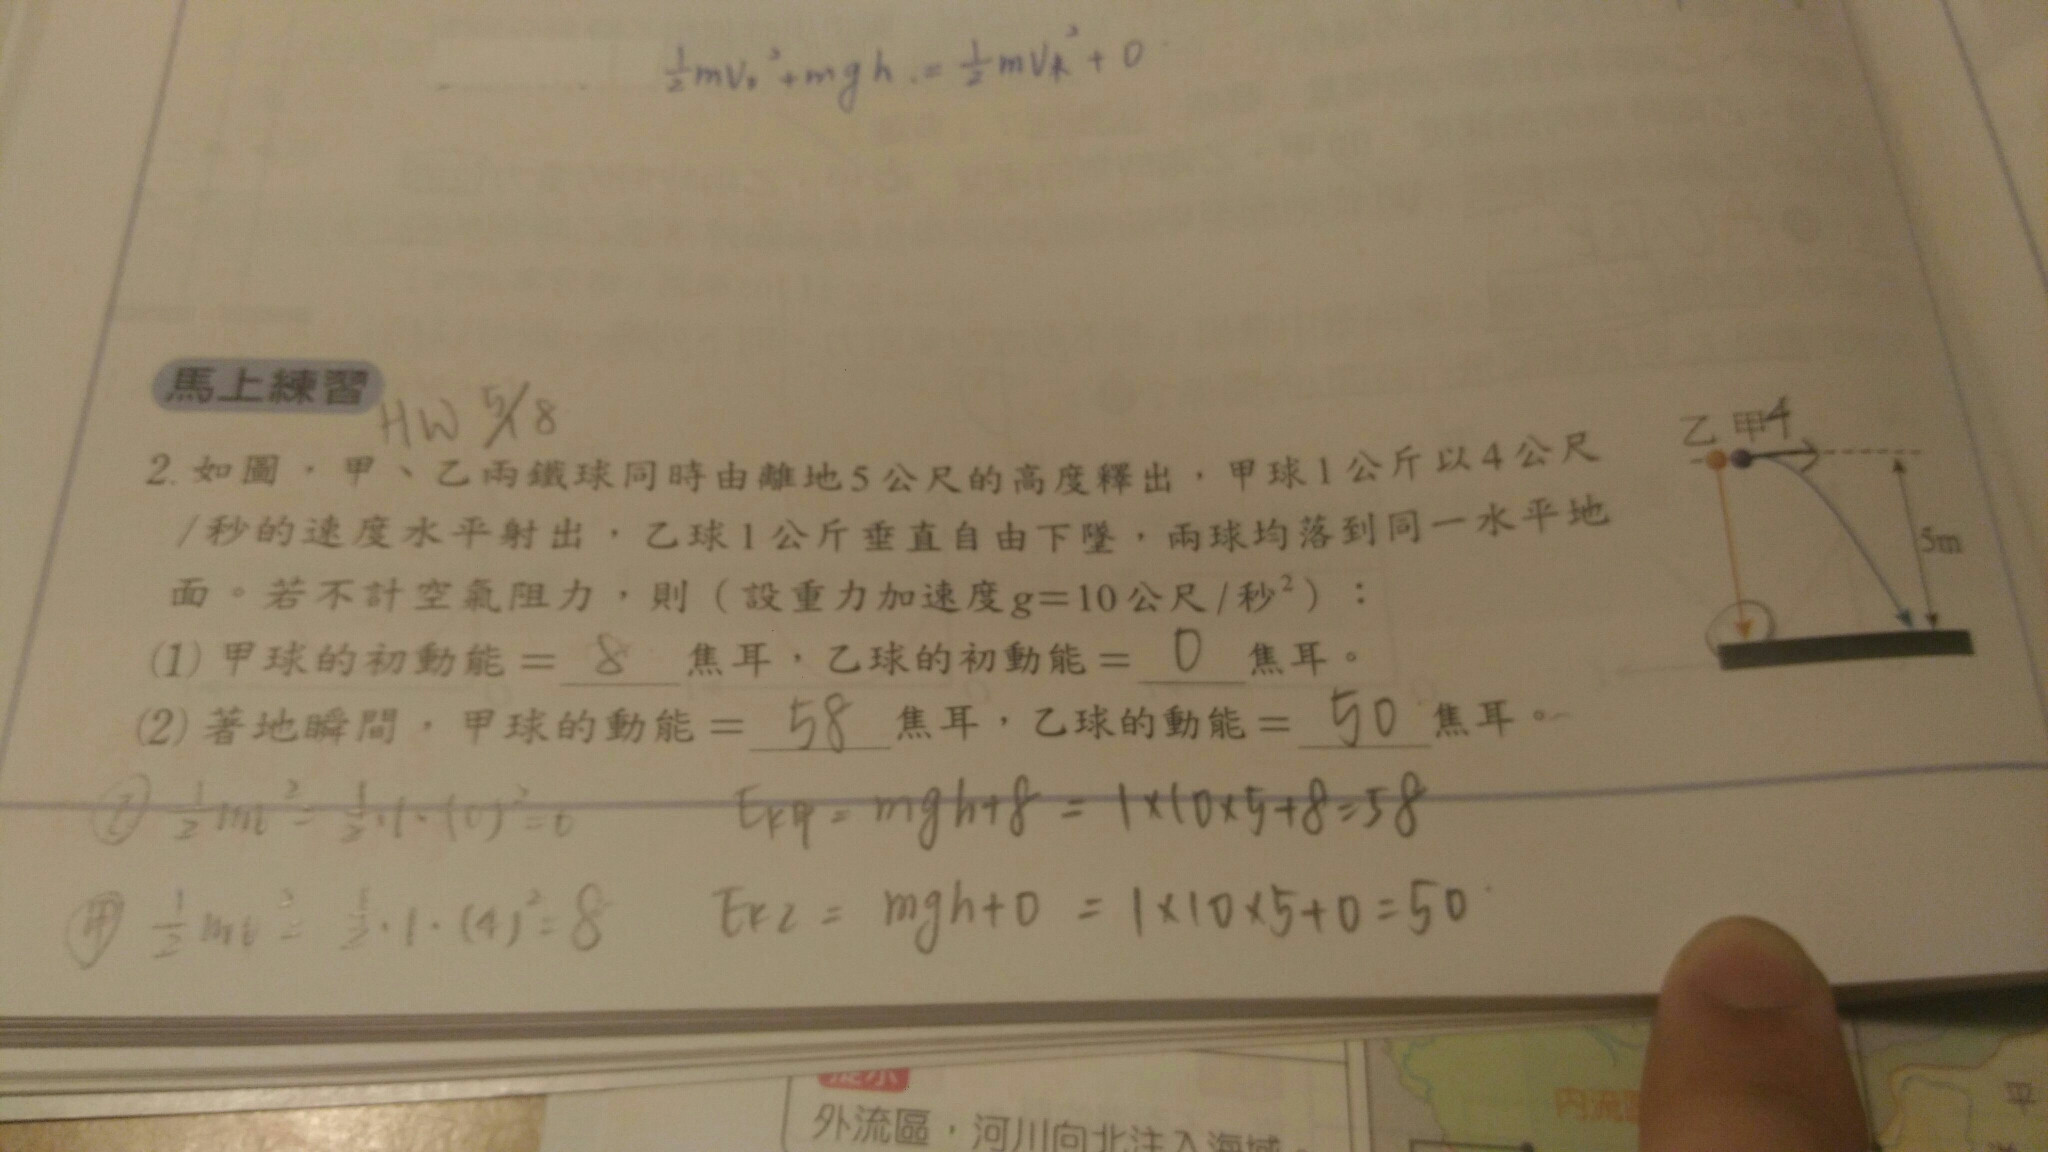 ½mv₀²+mgh = ½mv末²+0
馬上練習
HW 5/8
2. 如圖,甲、乙兩鐵球同時由離地5公尺的高度釋出,甲球1公斤以4公尺
/秒的速度水平射出,乙球1公斤垂直自由下墜,兩球均落到同一水平地
面。若不計空氣阻力,則(設重力加速度g=10公尺/秒²):
(1)甲球的初動能=8焦耳,乙球的初動能=0焦耳。
(2)著地瞬間,甲球的動能=58焦耳,乙球的動能=50焦耳。
乙 甲 4
5m
乙 ½mv²=½·1·(0)²=0
EK甲=mgh+8=1×10×5+8=58
甲 ½mv²=½·1·(4)²=8
EK乙=mgh+0=1×10×5+0=50
提示
外流區,河川向北注入海域。
內流
平